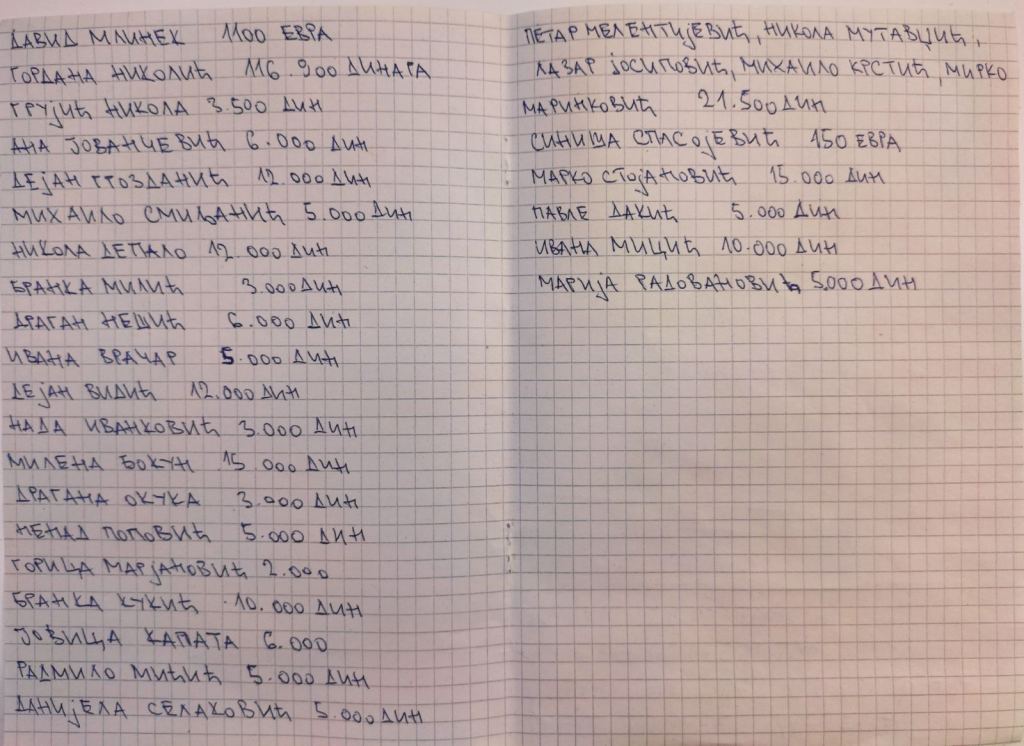 ДАВИД МЛИНЕК 1100 ЕВРА
ГОРДАНА НИКОЛИЋ 116.900 ДИНАРА
ГРУЈИЋ НИКОЛА 3.500 ДИН
АНА ЈОВАНЧЕВИЋ 6.000 ДИН
ДЕЈАН ГВОЗДАНИЋ 12.000 ДИН
МИХАИЛО СМИЉАНИЋ 5.000 ДИН
НИКОЛА ДЕПАЛО 12.000 ДИН
БРАНКА МИЛИЋ 3.000 ДИН
ДРАГАН НЕШИЋ 6.000 ДИН
ИВАНА ВРАЧАР 5.000 ДИН
ДЕЈАН ВИДИЋ 12.000 ДИН
НАДА ИВАНКОВИЋ 3.000 ДИН
МИЛЕНА БОКУН 15 000 ДИН
ДРАГАНА ОКУКА 3.000 ДИН
НЕНАД ПОПОВИЋ 5.000 ДИН
ГОРИЦА МАРЈАНОВИЋ 2.000
БРАНКА КУКИЋ 10.000 ДИН
ЈОВИЦА КАПАТА 6.000
РАДМИЛО МИЋИЋ 5.000 ДИН
ДАНИЈЕЛА СЕЛАКОВИЋ 5.000 ДИН
ПЕТАР МЕЛЕНТИЈЕВИЋ, НИКОЛА МУТАВЏИЋ,
ЛАЗАР ЈОСИПОВИЋ, МИХАИЛО КРСТИЋ, МИРКО
МАРИНКОВИЋ 21.500 ДИН
СИНИША СПАСОЈЕВИЋ 150 ЕВРА
МАРКО СТОЈАНОВИЋ 15.000 ДИН
ПАВЛЕ ДАКИЋ 5.000 ДИН
ИВАНА МИЦИЋ 10.000 ДИН
МАРИЈА РАДОВАНОВИЋ 5.000 ДИН